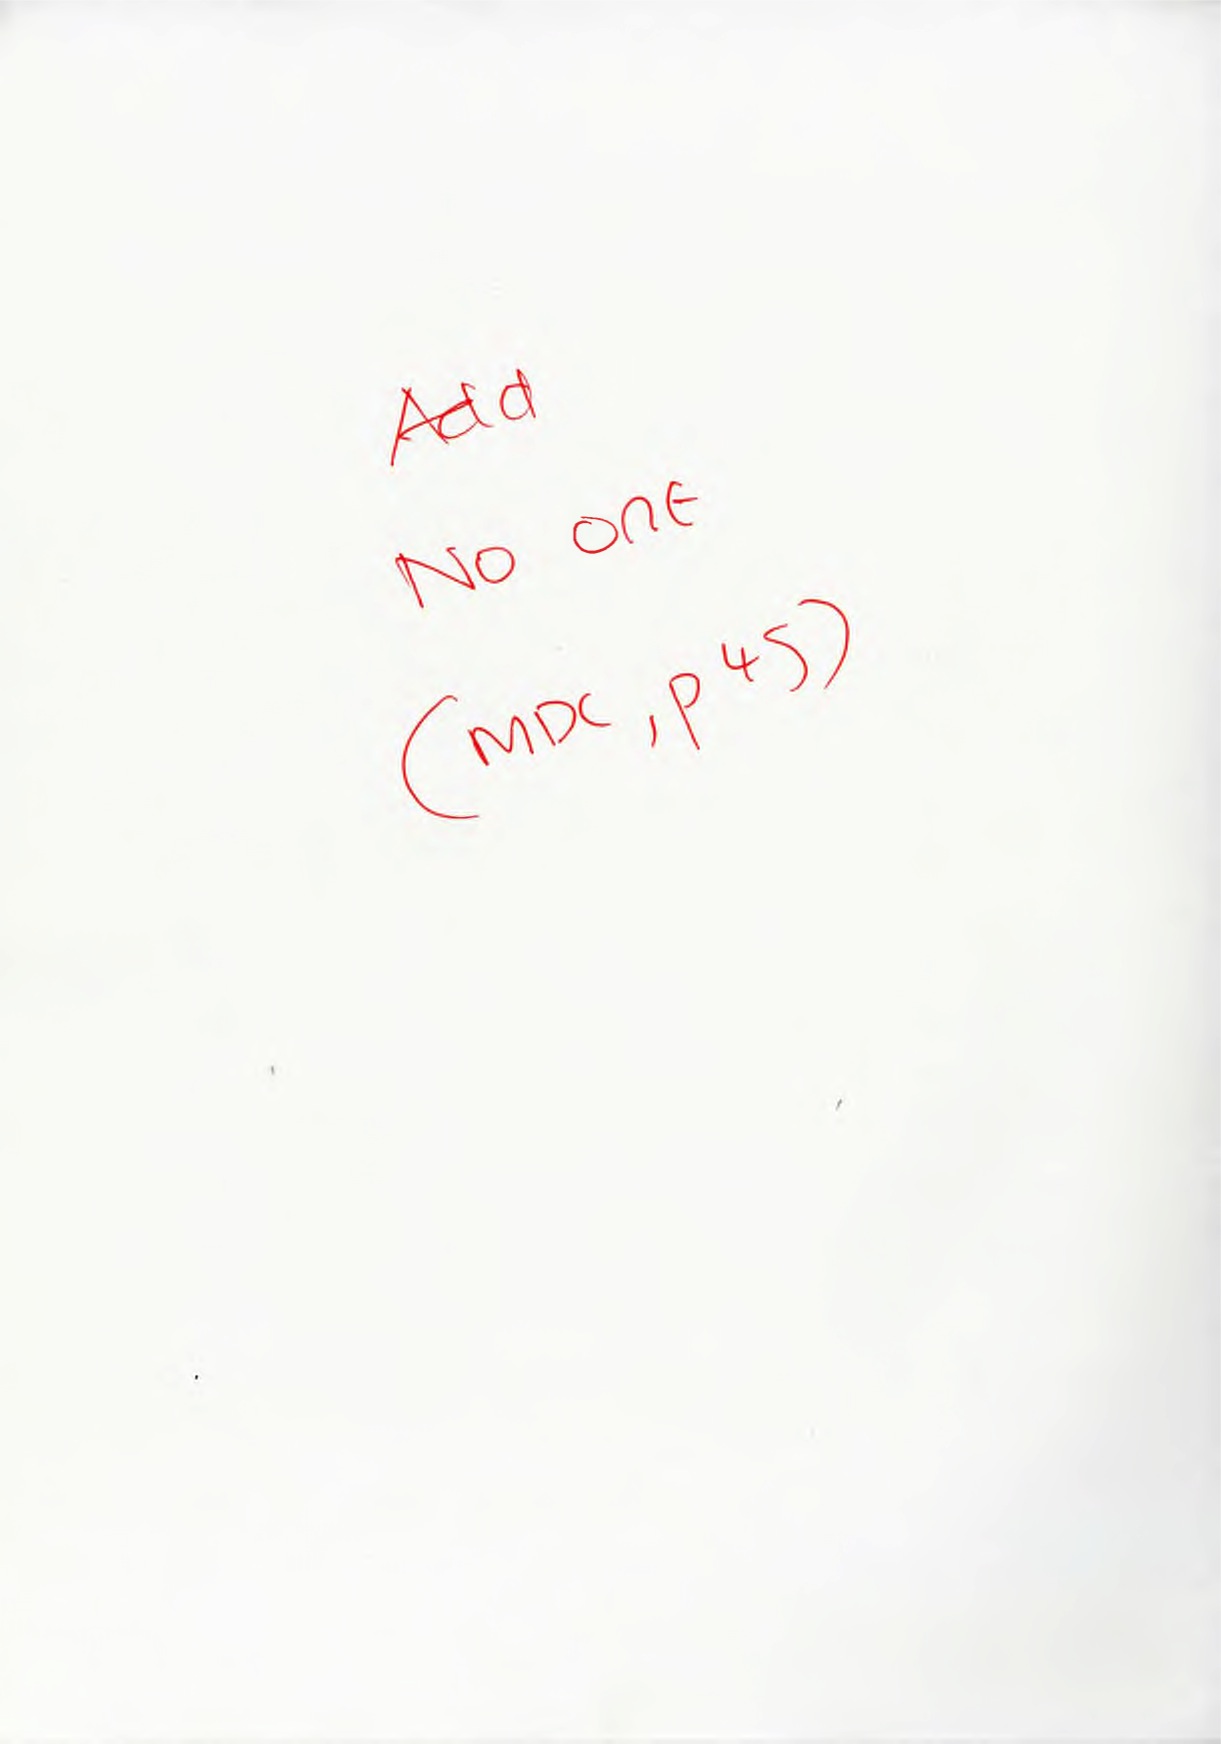 Add
No one
(MDC, p 45)